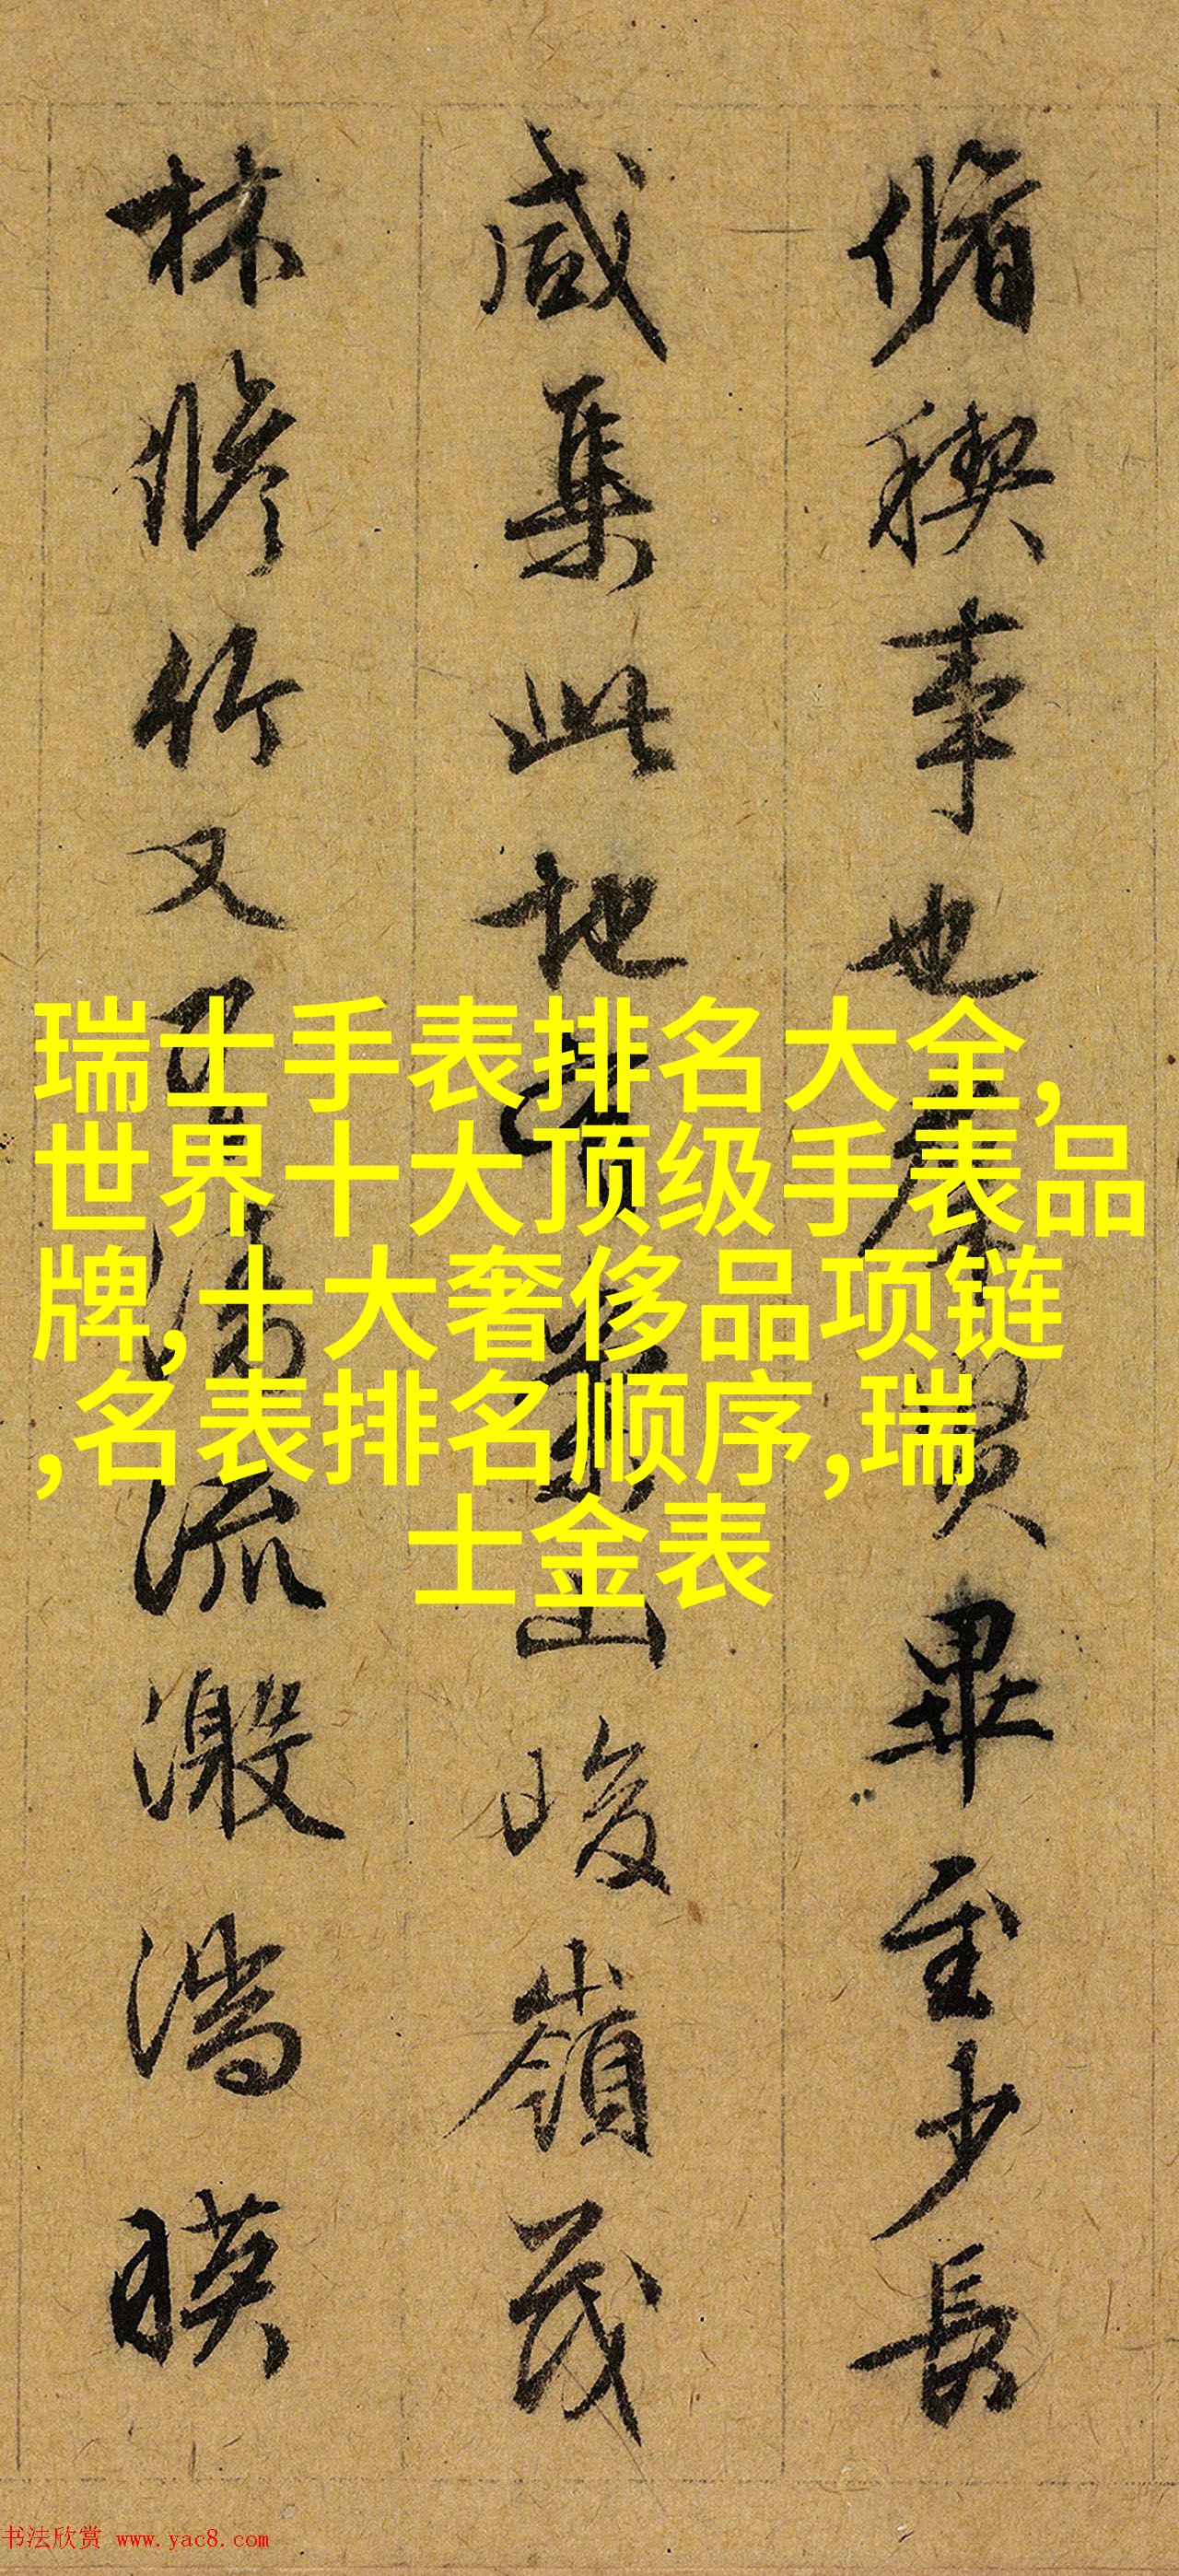 脩稧事也羣賢畢至少長
咸集此地有崇山峻嶺茂
林修竹又有清流激湍暎
瑞士手表排名大全,
世界十大顶级手表品
牌,十大奢侈品项链
,名表排名顺序,瑞
士金表
书法欣赏 www.yac8.com